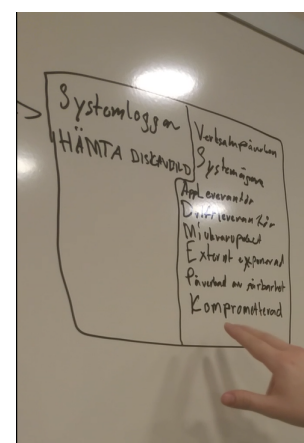 Systemloggar
HÄMTA DISKAVBILD
Verksampåverkan
Systemägare
App Leverantör
Driftleverantör
Mjukvarupaket
Externt exponerad
Påverkad av sårbarhet
Komprometterad